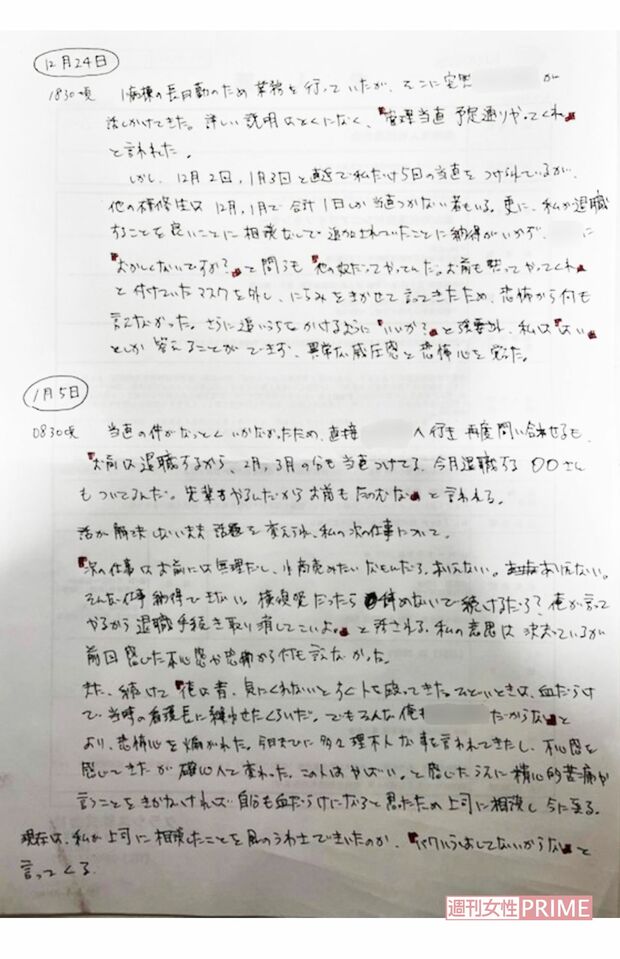 12月24日
1830頃 1病棟の長日勤のため業務を行っていたが、そこに室 が
話しかけてきた。詳しい説明はとくになく、『管理当直 予定通りやってくれ』
と言われた。
しかし、12月2回、1月3回と直近で私だけ5回の当直をつけられているが、
他の研修生は12月、1月で合計1回しか当直つかない者もいる。更に、私が退職
することを良いことに相談なしで追加されていたことに納得がいかず、 に
『おかしくないですか?』と問うも『他の奴だってやってんだ。お前も黙ってやってくれ』
と付けていたマスクを外し、にらみをきかせて言ってきたため、恐怖から何も
言えなかった。さらに追いうちをかけるように『いいか?』と強要され、私は『はい』
としか答えることができず、異常な威圧感と恐怖心を覚えた。
1月5日
0830頃 当直の件がなっとくいかなかったため、直接 へ行き再度問い合わせるも、
『お前は退職するから、2月、3月の分も当直つけてる。今月退職する〇〇さん
もついてるんだ。先輩もやるんだからお前もたのむな』と言われる。
話が解決しないまま話題を変えられ、私の次の仕事について、
『次の仕事はお前には無理だし、小商売みたいなもんだろ、ありえない。 ありえない。
そんな仕事納得できない。横須賀だったら辞めないで続けるだろ?俺が言って
やるから退職手続き取り消してこいよ。』と脅される。私の意思は決まっているが
前回感じた不心感や恐怖から何も言えなかった。
また、続けて『俺は昔、気にくわないとすぐ人を殴ってきた。ひどいときは、血だらけ
で当時の看護長に縫わせたくらいだ。でもそんな俺も だからな』と
より、恐怖心を煽がれた。今日までに多々理不尽な事を言われてきたし、不心感を
感じてきたが確心へと変わった。この人はやばい。と感じたうえに精心的苦痛や
言うことをきかなければ自分も血だらけになると思ったため上司に相談し今に至る。
現在は、私が上司に相談したことを風のうわさできいたのか、『パワハラはしてないからな』と
言ってくる。
週刊女性PRIME